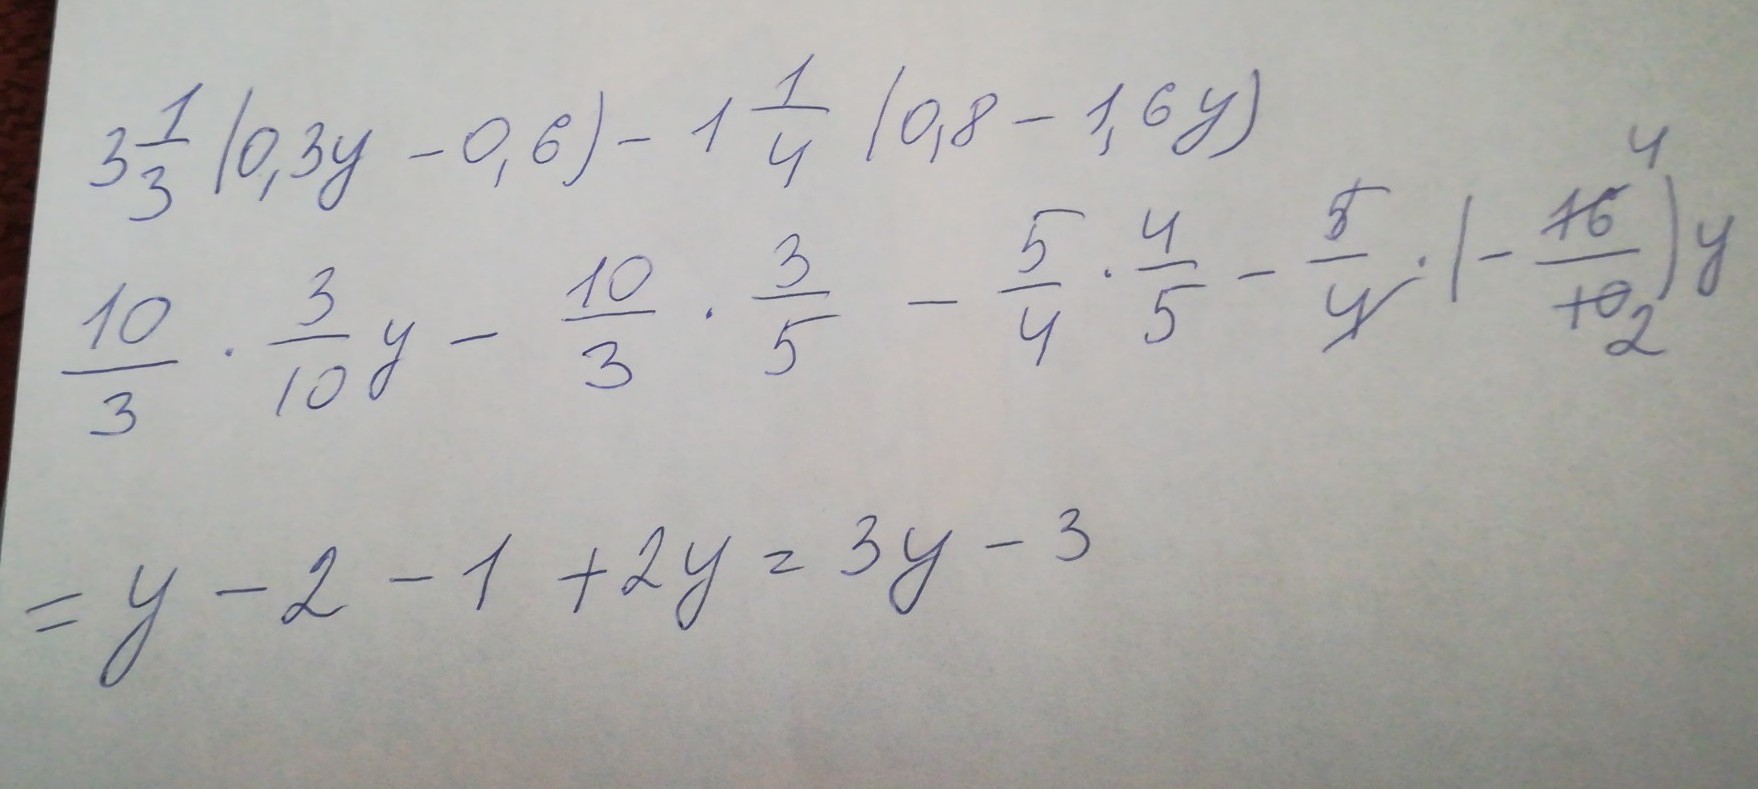 3 1/3 (0,3y - 0,6) - 1 1/4 (0,8 - 1,6y)
10/3 · 3/10 y - 10/3 · 3/5 - 5/4 · 4/5 - 5/4 · (- 16/10) y 4 2
= y - 2 - 1 + 2y = 3y - 3